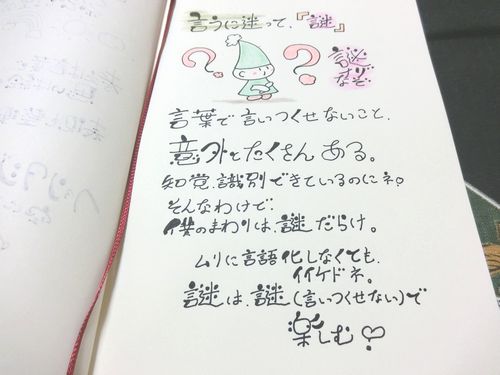 言うに迷って、『謎』
? ?
謎
なぞ
言葉で言いつくせないこと、
意外とたくさんある。
知覚、識別できているのにネ。
そんなわけで、
僕のまわりは、謎だらけ。
ムリに言語化しなくても、
イイケドネ。
謎は、謎(言いつくせない)で
楽しむ♡